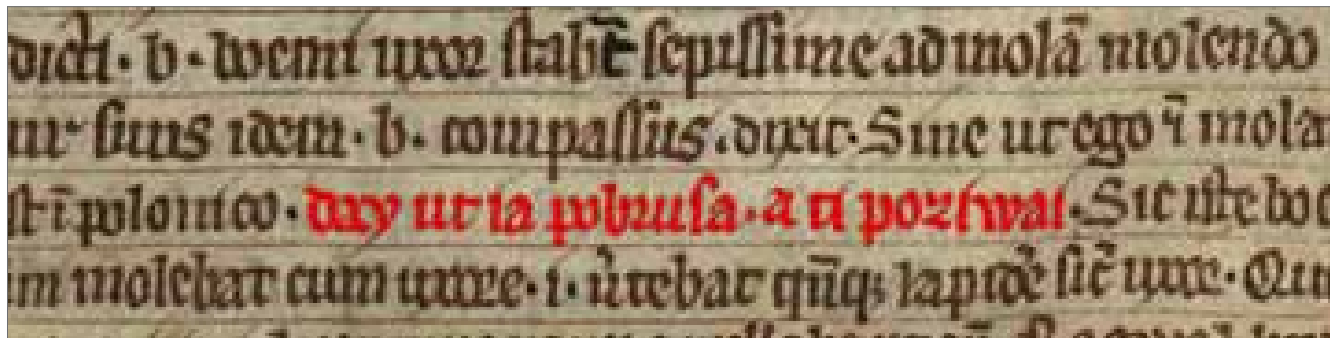 dicti · b · boemi uxor stabat sepissime ad molā molendo
ui⁹ suus idem · b · compassus · dixit · Sine ut ego ⁊ī mola
st ī polonico · day ut ia pobrusa · a ti poziwai · Sic iste boe
molebat cum uxore · i · v̓tebat qn̄q; lapidē sic̄ uxor ·